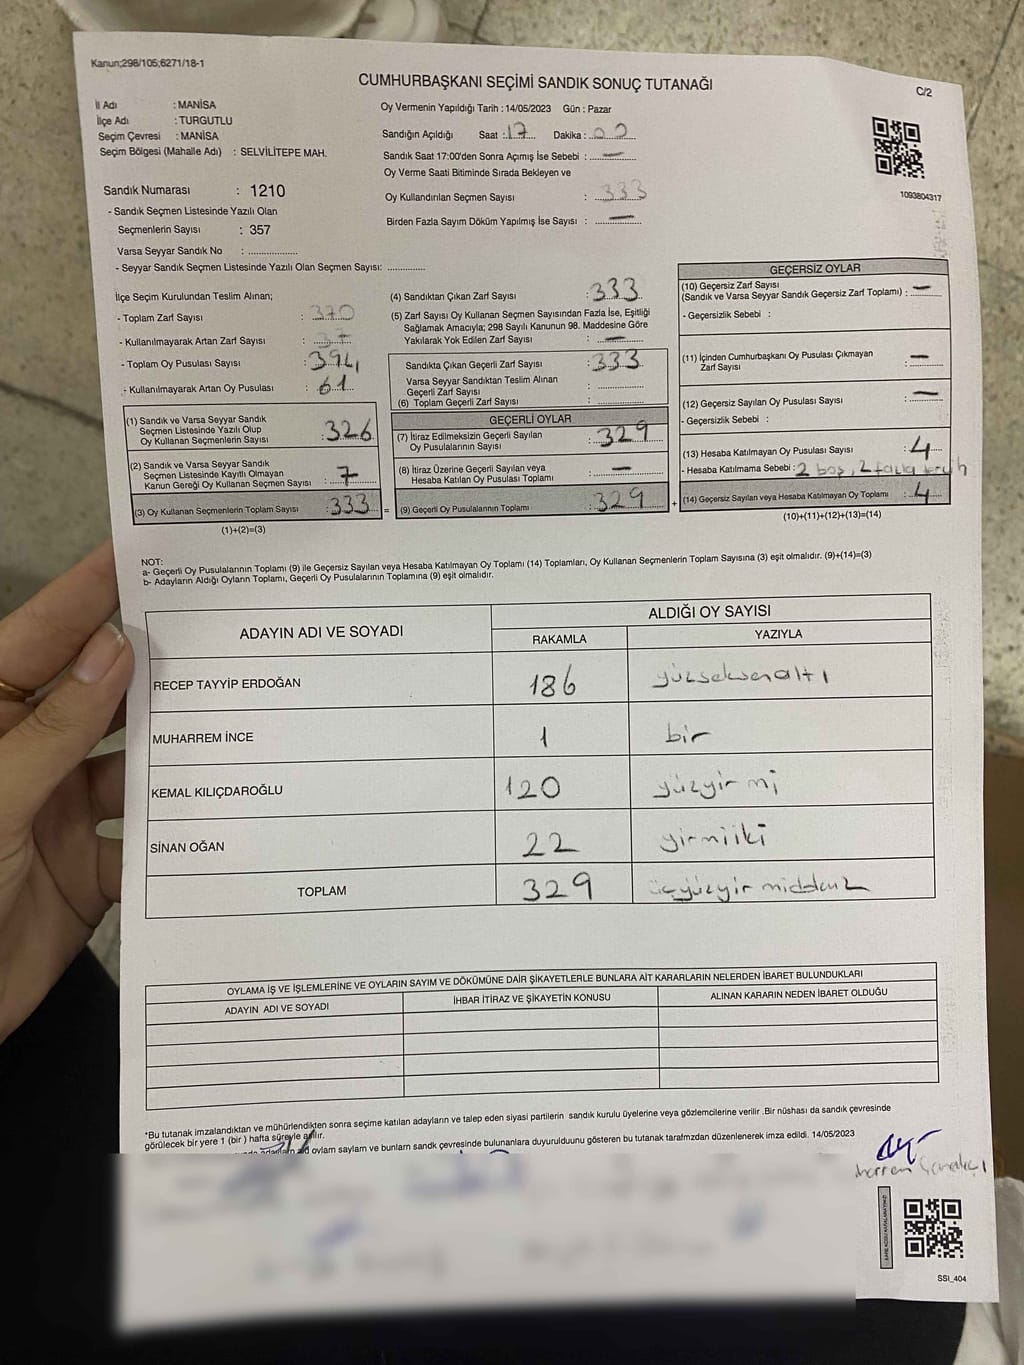 Kanun;298/105;6271/18-1
CUMHURBAŞKANI SEÇİMİ SANDIK SONUÇ TUTANAĞI
C/2
İl Adı : MANİSA
İlçe Adı : TURGUTLU
Seçim Çevresi : MANİSA
Seçim Bölgesi (Mahalle Adı) : SELVİLİTEPE MAH.
Sandık Numarası : 1210
- Sandık Seçmen Listesinde Yazılı Olan
Seçmenlerin Sayısı : 357
Varsa Seyyar Sandık No : ....................
- Seyyar Sandık Seçmen Listesinde Yazılı Olan Seçmen Sayısı: ...............
Oy Vermenin Yapıldığı Tarih : 14/05/2023 Gün : Pazar
Sandığın Açıldığı Saat : 17 Dakika : 00
Sandık Saat 17:00'den Sonra Açımış İse Sebebi : —
Oy Verme Saati Bitiminde Sırada Bekleyen ve
Oy Kullandırılan Seçmen Sayısı : 333
Birden Fazla Sayım Döküm Yapılmış İse Sayısı : —
1093804317
İlçe Seçim Kurulundan Teslim Alınan;
- Toplam Zarf Sayısı : 370
- Kullanılmayarak Artan Zarf Sayısı : 37
- Toplam Oy Pusulası Sayısı : 394
- Kullanılmayarak Artan Oy Pusulası : 61
(1) Sandık ve Varsa Seyyar Sandık
Seçmen Listesinde Yazılı Olup
Oy Kullanan Seçmenlerin Sayısı : 326
(2) Sandık ve Varsa Seyyar Sandık
Seçmen Listesinde Kayıtlı Olmayan
Kanun Gereği Oy Kullanan Seçmen Sayısı : 7
(3) Oy Kullanan Seçmenlerin Toplam Sayısı : 333 =
(1)+(2)=(3)
(4) Sandıktan Çıkan Zarf Sayısı : 333
(5) Zarf Sayısı Oy Kullanan Seçmen Sayısından Fazla İse, Eşitliği
Sağlamak Amacıyla; 298 Sayılı Kanunun 98. Maddesine Göre
Yakılarak Yok Edilen Zarf Sayısı : —
Sandıkta Çıkan Geçerli Zarf Sayısı : 333
Varsa Seyyar Sandıktan Teslim Alınan
Geçerli Zarf Sayısı : ....................
(6) Toplam Geçerli Zarf Sayısı : ....................
GEÇERLİ OYLAR
(7) İtiraz Edilmeksizin Geçerli Sayılan
Oy Pusulalarının Sayısı : 329
(8) İtiraz Üzerine Geçerli Sayılan veya
Hesaba Katılan Oy Pusulası Toplamı : —
(9) Geçerli Oy Pusulalarının Toplamı : 329 +
GEÇERSİZ OYLAR
(10) Geçersiz Zarf Sayısı
(Sandık ve Varsa Seyyar Sandık Geçersiz Zarf Toplamı) : —
- Geçersizlik Sebebi :
(11) İçinden Cumhurbaşkanı Oy Pusulası Çıkmayan
Zarf Sayısı : —
(12) Geçersiz Sayılan Oy Pusulası Sayısı : —
- Geçersizlik Sebebi :
(13) Hesaba Katılmayan Oy Pusulası Sayısı : 4
- Hesaba Katılmama Sebebi : 2 boş, 2 fazla tercih
(14) Geçersiz Sayılan veya Hesaba Katılmayan Oy Toplamı : 4
(10)+(11)+(12)+(13)=(14)
NOT:
a- Geçerli Oy Pusulalarının Toplamı (9) ile Geçersiz Sayılan veya Hesaba Katılmayan Oy Toplamı (14) Toplamları, Oy Kullanan Seçmenlerin Toplam Sayısına (3) eşit olmalıdır. (9)+(14)=(3)
b- Adayların Aldığı Oyların Toplamı, Geçerli Oy Pusulalarının Toplamına (9) eşit olmalıdır.
ADAYIN ADI VE SOYADI ALDIĞI OY SAYISI
RAKAMLA YAZIYLA
RECEP TAYYİP ERDOĞAN 186 yüzseksenaltı
MUHARREM İNCE 1 bir
KEMAL KILIÇDAROĞLU 120 yüzyirmi
SİNAN OĞAN 22 yirmiiki
TOPLAM 329 üçyüzyirmidokuz
OYLAMA İŞ VE İŞLEMLERİNE VE OYLARIN SAYIM VE DÖKÜMÜNE DAİR ŞİKAYETLERLE BUNLARA AİT KARARLARIN NELERDEN İBARET BULUNDUKLARI
ADAYIN ADI VE SOYADI İHBAR İTİRAZ VE ŞİKAYETİN KONUSU ALINAN KARARIN NEDEN İBARET OLDUĞU
*Bu tutanak imzalandıktan ve mühürlendikten sonra seçime katılan adayların ve talep eden siyasi partilerin sandık kurulu üyelerine veya gözlemcilerine verilir .Bir nüshası da sandık çevresinde
görülecek bir yere 1 (bir ) hafta süreyle asılır.
oyların sayları ve bunların sandık çevresinde bulunanlara duyurulduunu gösteren bu tutanak tarafmzdan düzenlenerek imza edildi. 14/05/2023
SSI_404